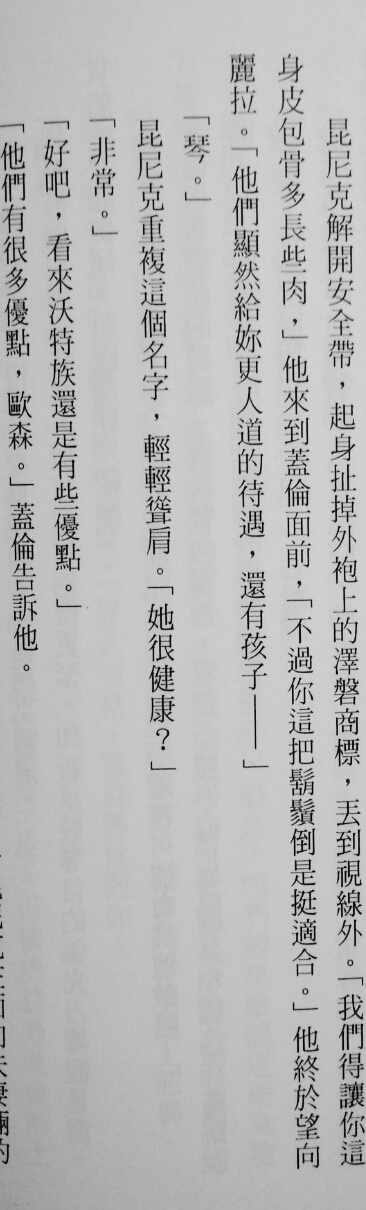 昆尼克解開安全帶，起身扯掉外袍上的澤磐商標，丟到視線外。「我們得讓你這
身皮包骨多長些肉，」他來到蓋倫面前，「不過你這把鬍鬚倒是挺適合。」他終於望向
麗拉。「他們顯然給妳更人道的待遇，還有孩子——」
「琴。」
昆尼克重複這個名字，輕輕聳肩。「她很健康？」
「非常。」
「好吧，看來沃特族還是有些優點。」
「他們有很多優點，歐森。」蓋倫告訴他。